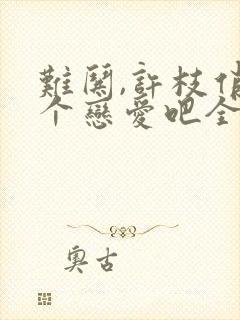 難關,許枝俏
个戀愛吧全
奧古